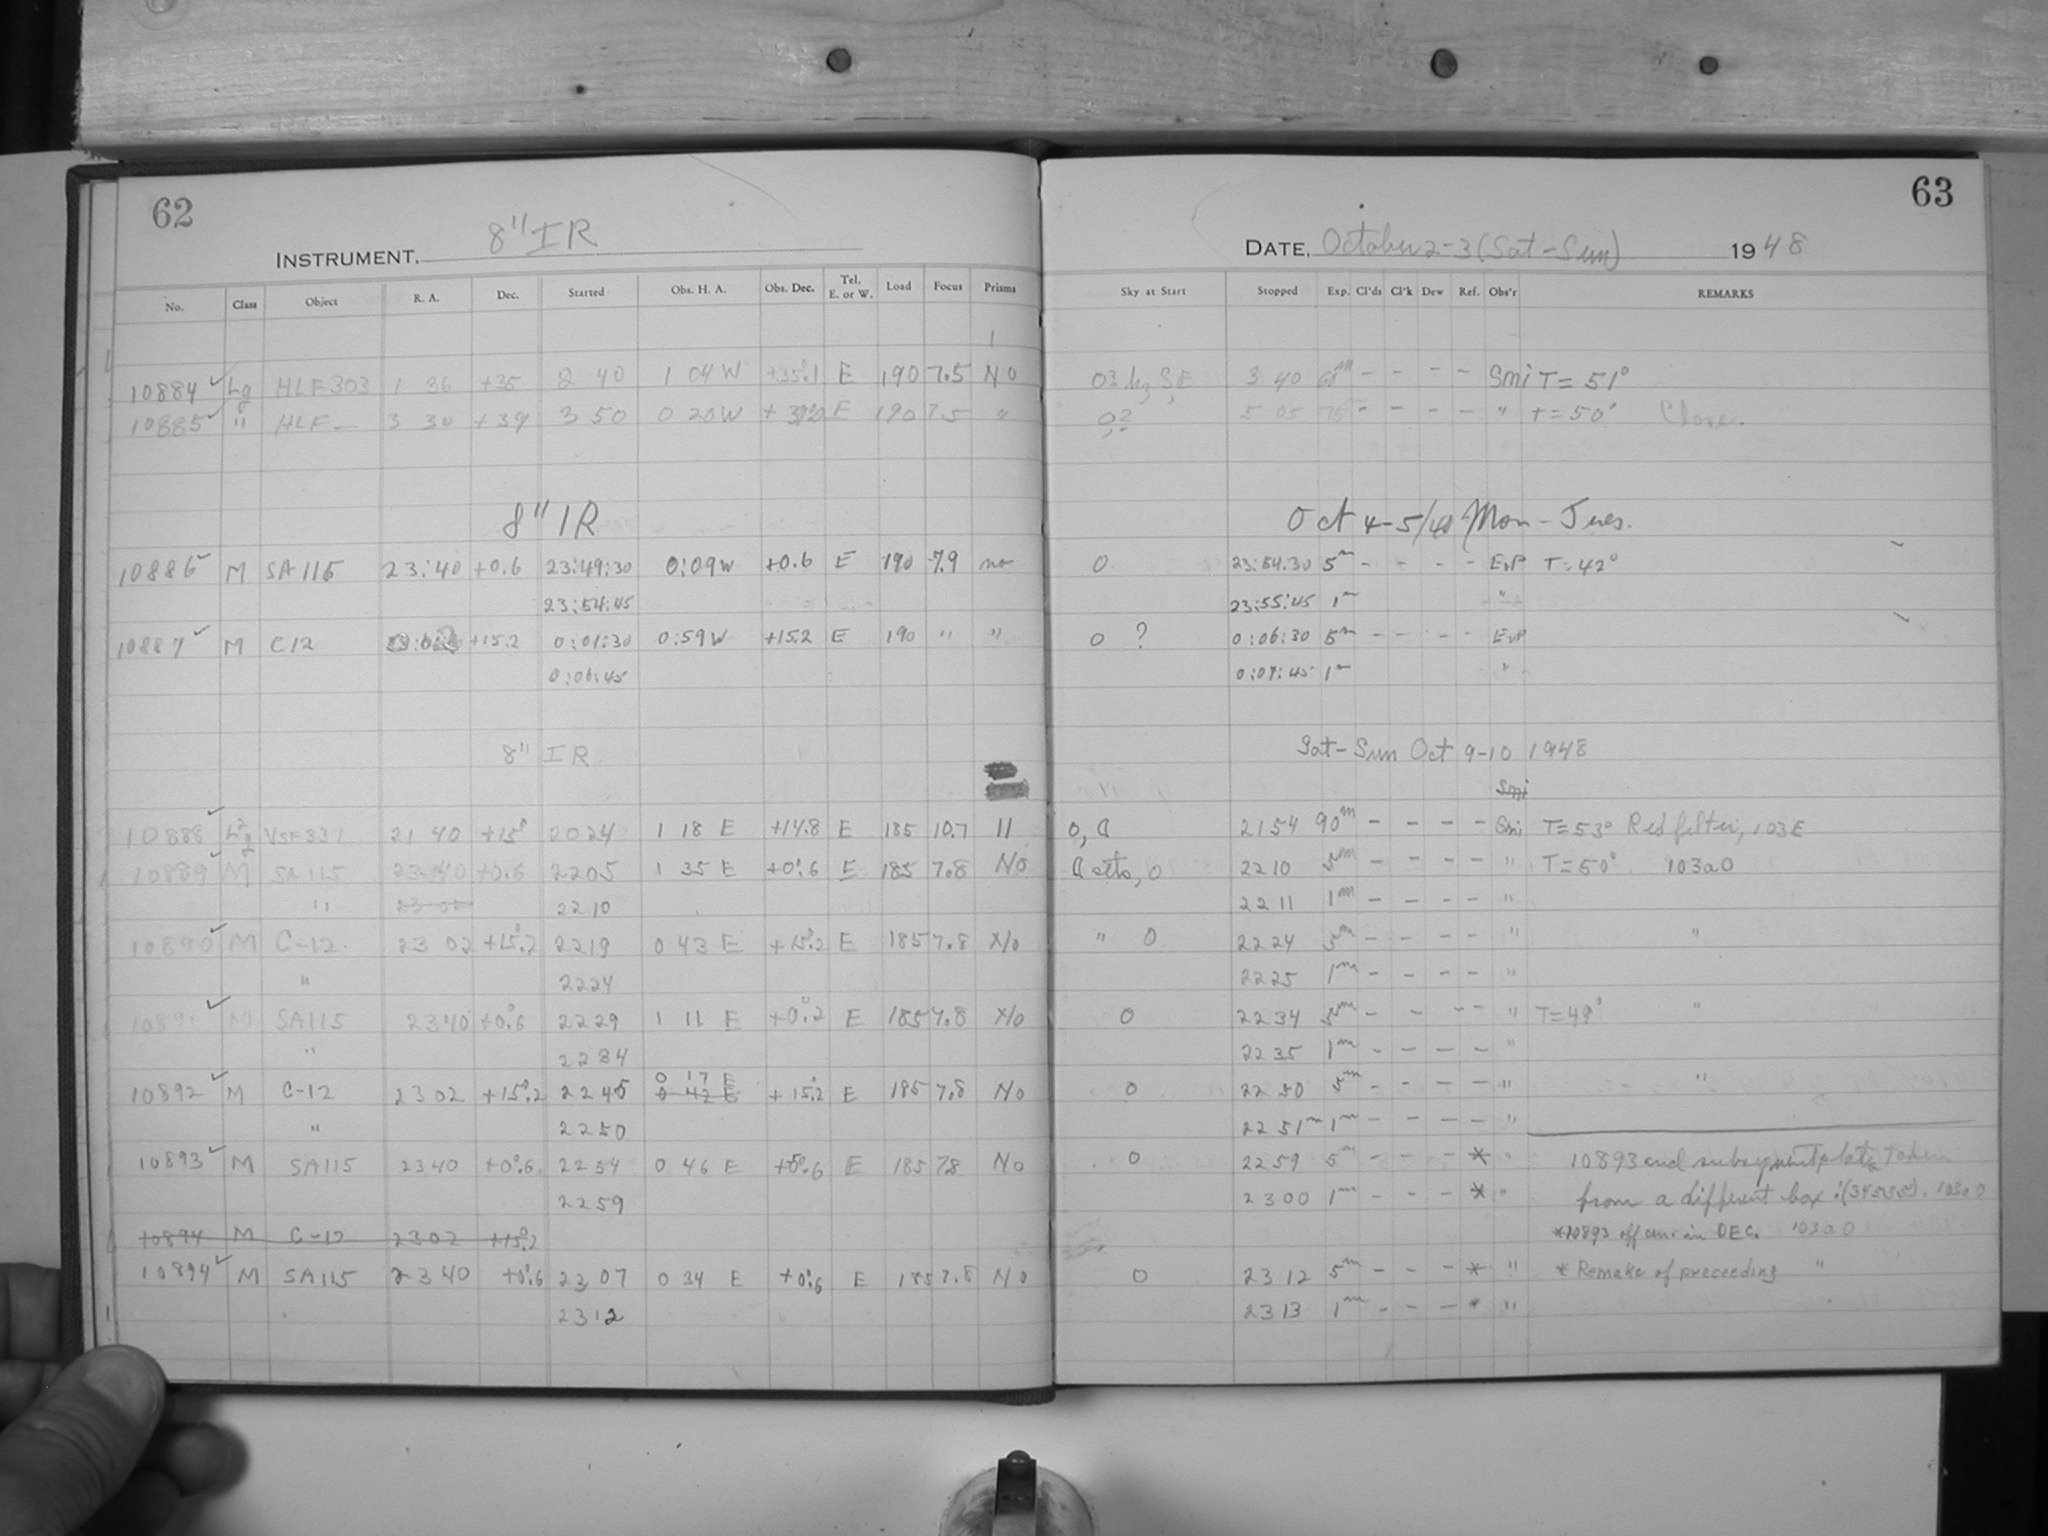 62
63
INSTRUMENT. 8" IR
DATE, October 2-3 (Sat-Sun) 1948
No. Class Object R. A. Dec. Started Obs. H. A. Obs. Dec. Tel. E. or W. Load Focus Prisms Sky at Start Stopped Exp. Cl'ds Cl'k Dew Ref. Obs'r REMARKS
10884 ✓ Lg HLE303 1 36 +35 2 40 1 04 W +35°.1 E 190 7.5 No 3 40 60m - - - - Smi T = 51°
10885 ✓ " HLE— 3 30 +39 3 50 0 20W E 190 7.5 " 5 05 75 - - - - " T=50° Close.
8" IR Oct 4-5/48 Mon - Tues.
10886 ✓ M SA 115 23:40 +0.6 23:49:30 0:09W +0.6 E 190 7.9 no 0 23:54:30 5m - - - - EvP T=42°
23:54:45 23:55:45 1m "
10887 ✓ M C12 +15.2 0:01:30 0:59W +15.2 E 190 " " 0 ? 0:06:30 5m - - - - EvP
0:06:45 0:07:45 1m "
8" IR Sat-Sun Oct 9-10 1948
Smi
10888 ✓ VSF331 21 40 +15° 20 24 1 18 E +14.8 E 185 10.7 11 21 54 90m - - - - Smi T=53° Red filter, 103E
10889 ✓ M SA115 23 40 +0.6 22 05 1 35 E +0°.6 E 185 7.8 No 22 10 5m - - - - " T=50° 103a0
" 23 02 22 10 22 11 1m - - - - "
10890 ✓ M C-12. 23 02 +15°.2 22 19 0 43 E +15°.2 E 185 7.8 No " 0 22 24 5m - - - - " "
" 22 24 22 25 1m - - - - "
1089 ✓ M SA115 23 40 +0°.6 22 29 1 11 E +0°.2 E 185 7.8 No 0 22 34 5m - - - - " T=49° "
" 22 34 22 35 1m - - - - "
0 17 E
10892 ✓ M C-12 23 02 +15°.2 22 45 0 42 E +15°.2 E 185 7.8 No 0 22 50 5m - - - - " "
" 22 50 22 51m 1m - - - - "
10893 ✓ M SA115 23 40 +0°.6 22 54 0 46 E +0°.6 E 185 7.8 No 0 22 59 5m - - - * " 10893 and subsequent plates taken
22 59 23 00 1m - - - * " from a different box 103a0
10894 M C-12 23 02 +15°.2 *10893 off cen. in DEC. 103a0
10894 ✓ M SA115 23 40 +0°.6 23 07 0 34 E +0°.6 E 185 7.8 No 0 23 12 5m - - - * " * Remake of preceeding "
23 12 23 13 1m - - - * "